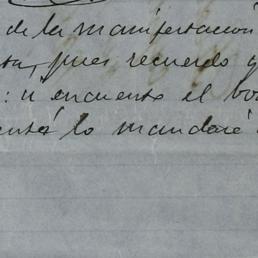 de la manifestacion
pues recuerdo
: si encuentro el
lo mandaré